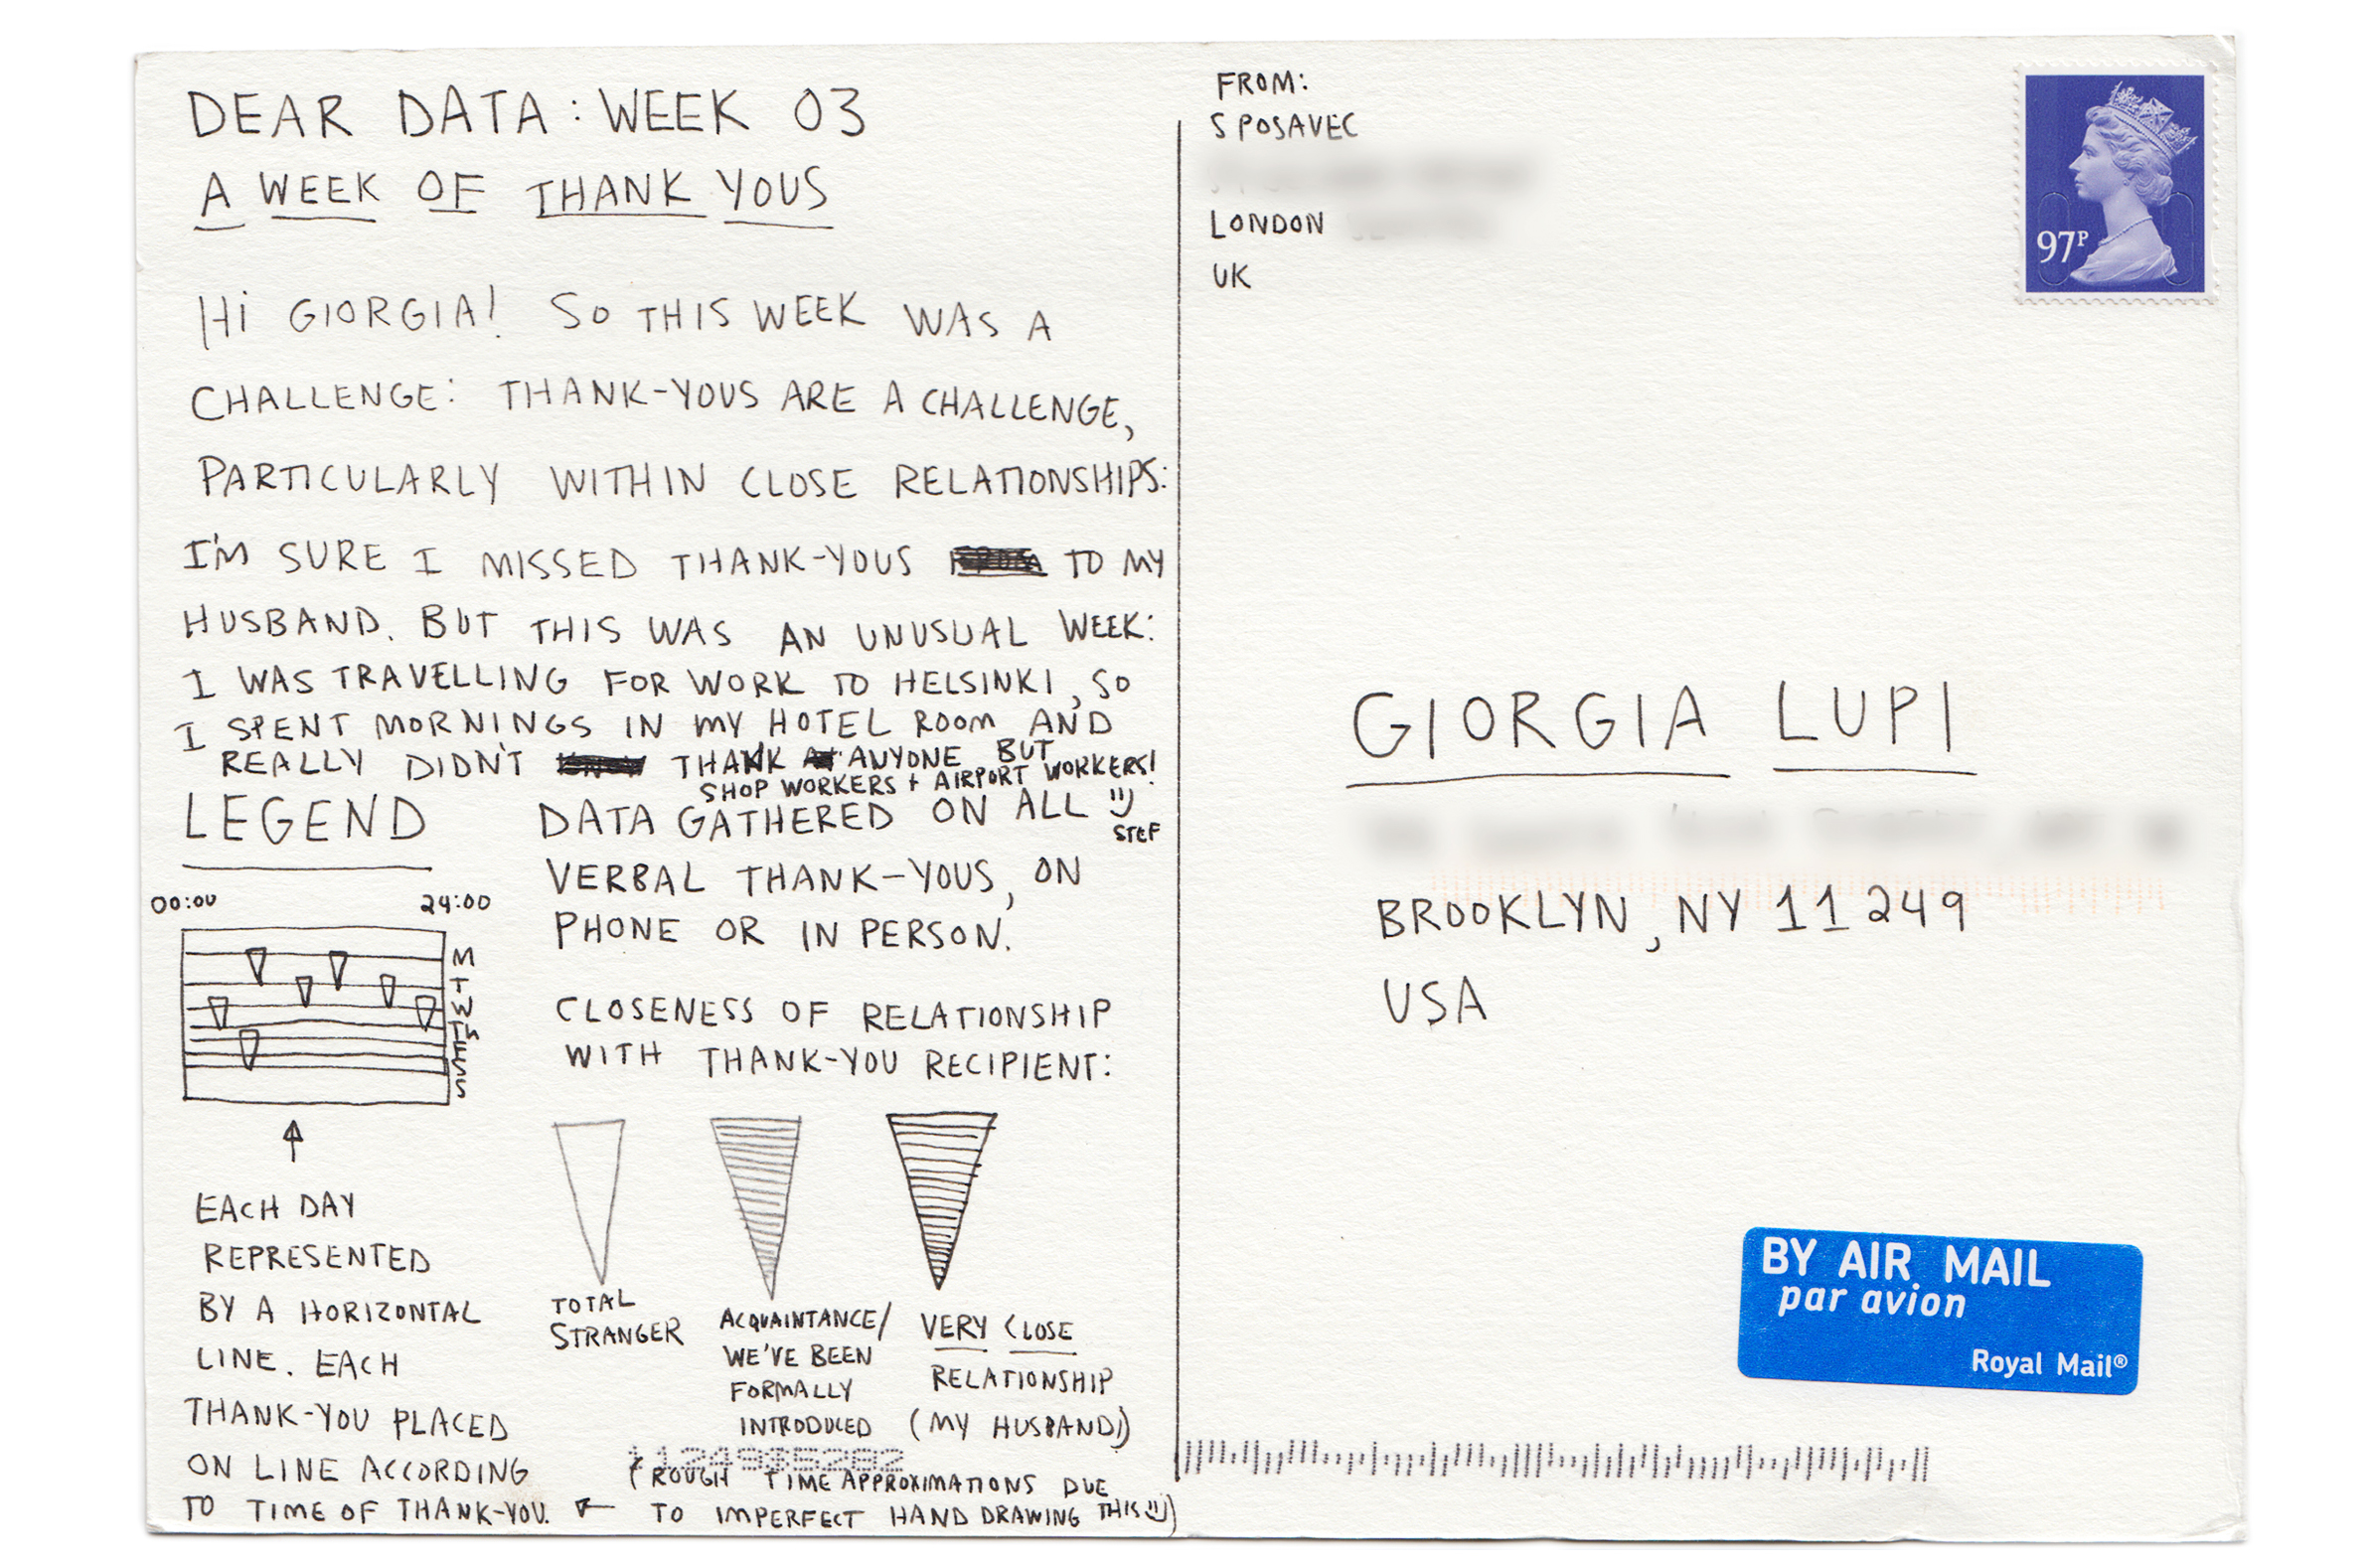 DEAR DATA: WEEK 03
A WEEK OF THANK YOUS
Hi GIORGIA! SO THIS WEEK WAS A
CHALLENGE: THANK-YOUS ARE A CHALLENGE,
PARTICULARLY WITHIN CLOSE RELATIONSHIPS:
I'M SURE I MISSED THANK-YOUS TO MY
HUSBAND. BUT THIS WAS AN UNUSUAL WEEK:
I WAS TRAVELLING FOR WORK TO HELSINKI, SO
I SPENT MORNINGS IN MY HOTEL ROOM AND
REALLY DIDN'T THANK ANYONE BUT
SHOP WORKERS + AIRPORT WORKERS!
STEF
LEGEND
00:00 24:00
M
T
W
T
F
S
S
EACH DAY
REPRESENTED
BY A HORIZONTAL
LINE. EACH
THANK-YOU PLACED
ON LINE ACCORDING
TO TIME OF THANK-YOU.
DATA GATHERED ON ALL
VERBAL THANK-YOUS, ON
PHONE OR IN PERSON.
CLOSENESS OF RELATIONSHIP
WITH THANK-YOU RECIPIENT:
TOTAL
STRANGER
ACQUAINTANCE/
WE'VE BEEN
FORMALLY
INTRODUCED
VERY CLOSE
RELATIONSHIP
(MY HUSBAND)
(ROUGH TIME APPROXIMATIONS DUE
TO IMPERFECT HAND DRAWING THIS)
FROM:
S POSAVEC
LONDON
UK
97P
GIORGIA LUPI
BROOKLYN, NY 11249
USA
BY AIR MAIL
par avion
Royal Mail®